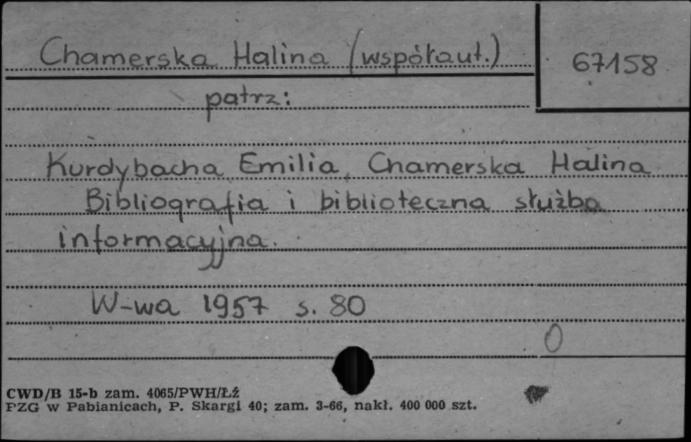 Chamerska Halina (współaut.)
67158
patrz:
Kurdybacha Emilia, Chamerska Halina
Bibliografia i biblioteczna służba
informacyjna.
W-wa 1957 s. 80
0
CWD/B 15-b zam. 4065/PWH/Łź
PZG w Pabianicach, P. Skargi 40; zam. 3-66, nakł. 400 000 szt.